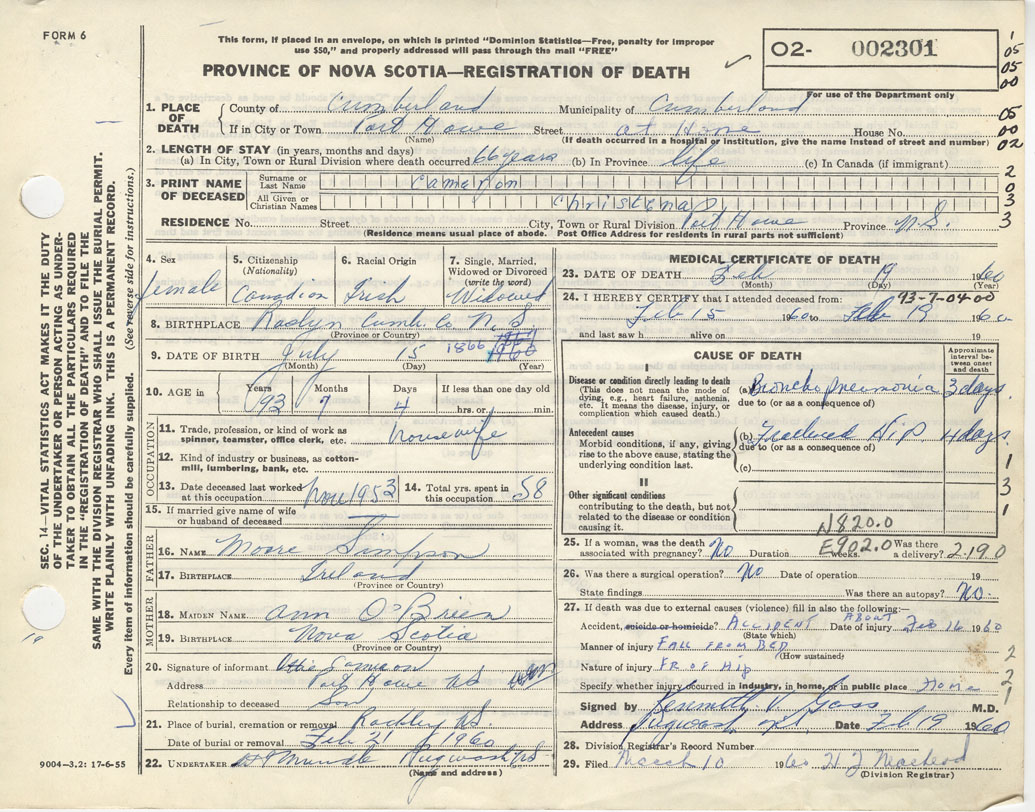 FORM 6
This form, if placed in an envelope, on which is printed "Dominion Statistics—Free, penalty for improper
use $50," and properly addressed will pass through the mail "FREE"
PROVINCE OF NOVA SCOTIA—REGISTRATION OF DEATH
O2- 002301
For use of the Department only
1. PLACE OF DEATH
County of Cumberland Municipality of Cumberland
If in City or Town Port Howe Street at Home House No.
(Name) (If death occurred in a hospital or institution, give the name instead of street and number)
2. LENGTH OF STAY (in years, months and days)
(a) In City, Town or Rural Division where death occurred 66 years (b) In Province life (c) In Canada (if immigrant)
3. PRINT NAME OF DECEASED
Surname or Last Name Cameron
All Given or Christian Names Christena
RESIDENCE No. Street City, Town or Rural Division Port Howe Province N.S.
(Residence means usual place of abode. Post Office Address for residents in rural parts not sufficient)
4. Sex female
5. Citizenship (Nationality) Canadian
6. Racial Origin Irish
7. Single, Married, Widowed or Divorced (write the word) Widowed
8. BIRTHPLACE Roslyn Cumb. Co N.S
(Province or Country)
9. DATE OF BIRTH July 15 1866
(Month) (Day) (Year)
10. AGE in Years 93 Months 7 Days 4 If less than one day old hrs. or min.
OCCUPATION
11. Trade, profession, or kind of work as spinner, teamster, office clerk, etc. housewife
12. Kind of industry or business, as cotton-mill, lumbering, bank, etc.
13. Date deceased last worked at this occupation Nov 1953
14. Total yrs. spent in this occupation 58
15. If married give name of wife or husband of deceased
FATHER
16. NAME Moore Simpson
17. BIRTHPLACE Ireland
(Province or Country)
MOTHER
18. MAIDEN NAME Ann O'Brien
19. BIRTHPLACE Nova Scotia
(Province or Country)
20. Signature of informant Cameron
Address Port Howe NS
Relationship to deceased Son
21. Place of burial, cremation or removal Rockley N.S.
Date of burial or removal Feb 21 1960
22. UNDERTAKER Pugwash NS
(Name and address)
MEDICAL CERTIFICATE OF DEATH
23. DATE OF DEATH Feb 19 1960
(Month) (Day) (Year)
93-7-04-00
24. I HEREBY CERTIFY that I attended deceased from:
Feb 15 1960 to Feb 19 1960
and last saw h alive on 19
CAUSE OF DEATH
Approximate interval between onset and death
I
Disease or condition directly leading to death
(This does not mean the mode of dying, e.g., heart failure, asthenia, etc. It means the disease, injury, or complication which caused death.)
(a) Broncho pneumonia 3 days.
due to (or as a consequence of)
Antecedent causes
Morbid conditions, if any, giving rise to the above cause, stating the underlying condition last.
(b) Fractured Hip 4 days
due to (or as a consequence of)
(c)
II
Other significant conditions
contributing to the death, but not related to the disease or condition causing it.
N820.0
E902.0
25. If a woman, was the death associated with pregnancy? No Duration weeks. Was there a delivery? 2190
26. Was there a surgical operation? No Date of operation 19
State findings Was there an autopsy? No.
27. If death was due to external causes (violence) fill in also the following:—
Accident, suicide or homicide? ACCIDENT Date of injury ABOUT Feb 16 1960
(State which)
Manner of injury FALL FROM BED
(How sustained)
Nature of injury FR OF HIP
Specify whether injury occurred in industry, in home, or in public place Home
Signed by Kenneth V. Gass M.D.
Address Pugwash, N.S. Date Feb 19 1960
28. Division Registrar's Record Number
29. Filed March 10 1960
(Division Registrar)
9004—3.2: 17-6-55
SEC. 14—VITAL STATISTICS ACT MAKES IT THE DUTY
OF THE UNDERTAKER OR PERSON ACTING AS UNDER-
TAKER TO OBTAIN ALL THE PARTICULARS REQUIRED
IN THE "REGISTRATION OF DEATH" AND TO FILE THE
SAME WITH THE DIVISION REGISTRAR WHO SHALL ISSUE THE BURIAL PERMIT.
WRITE PLAINLY WITH UNFADING INK. THIS IS A PERMANENT RECORD.
Every item of information should be carefully supplied. (See reverse side for instructions.)